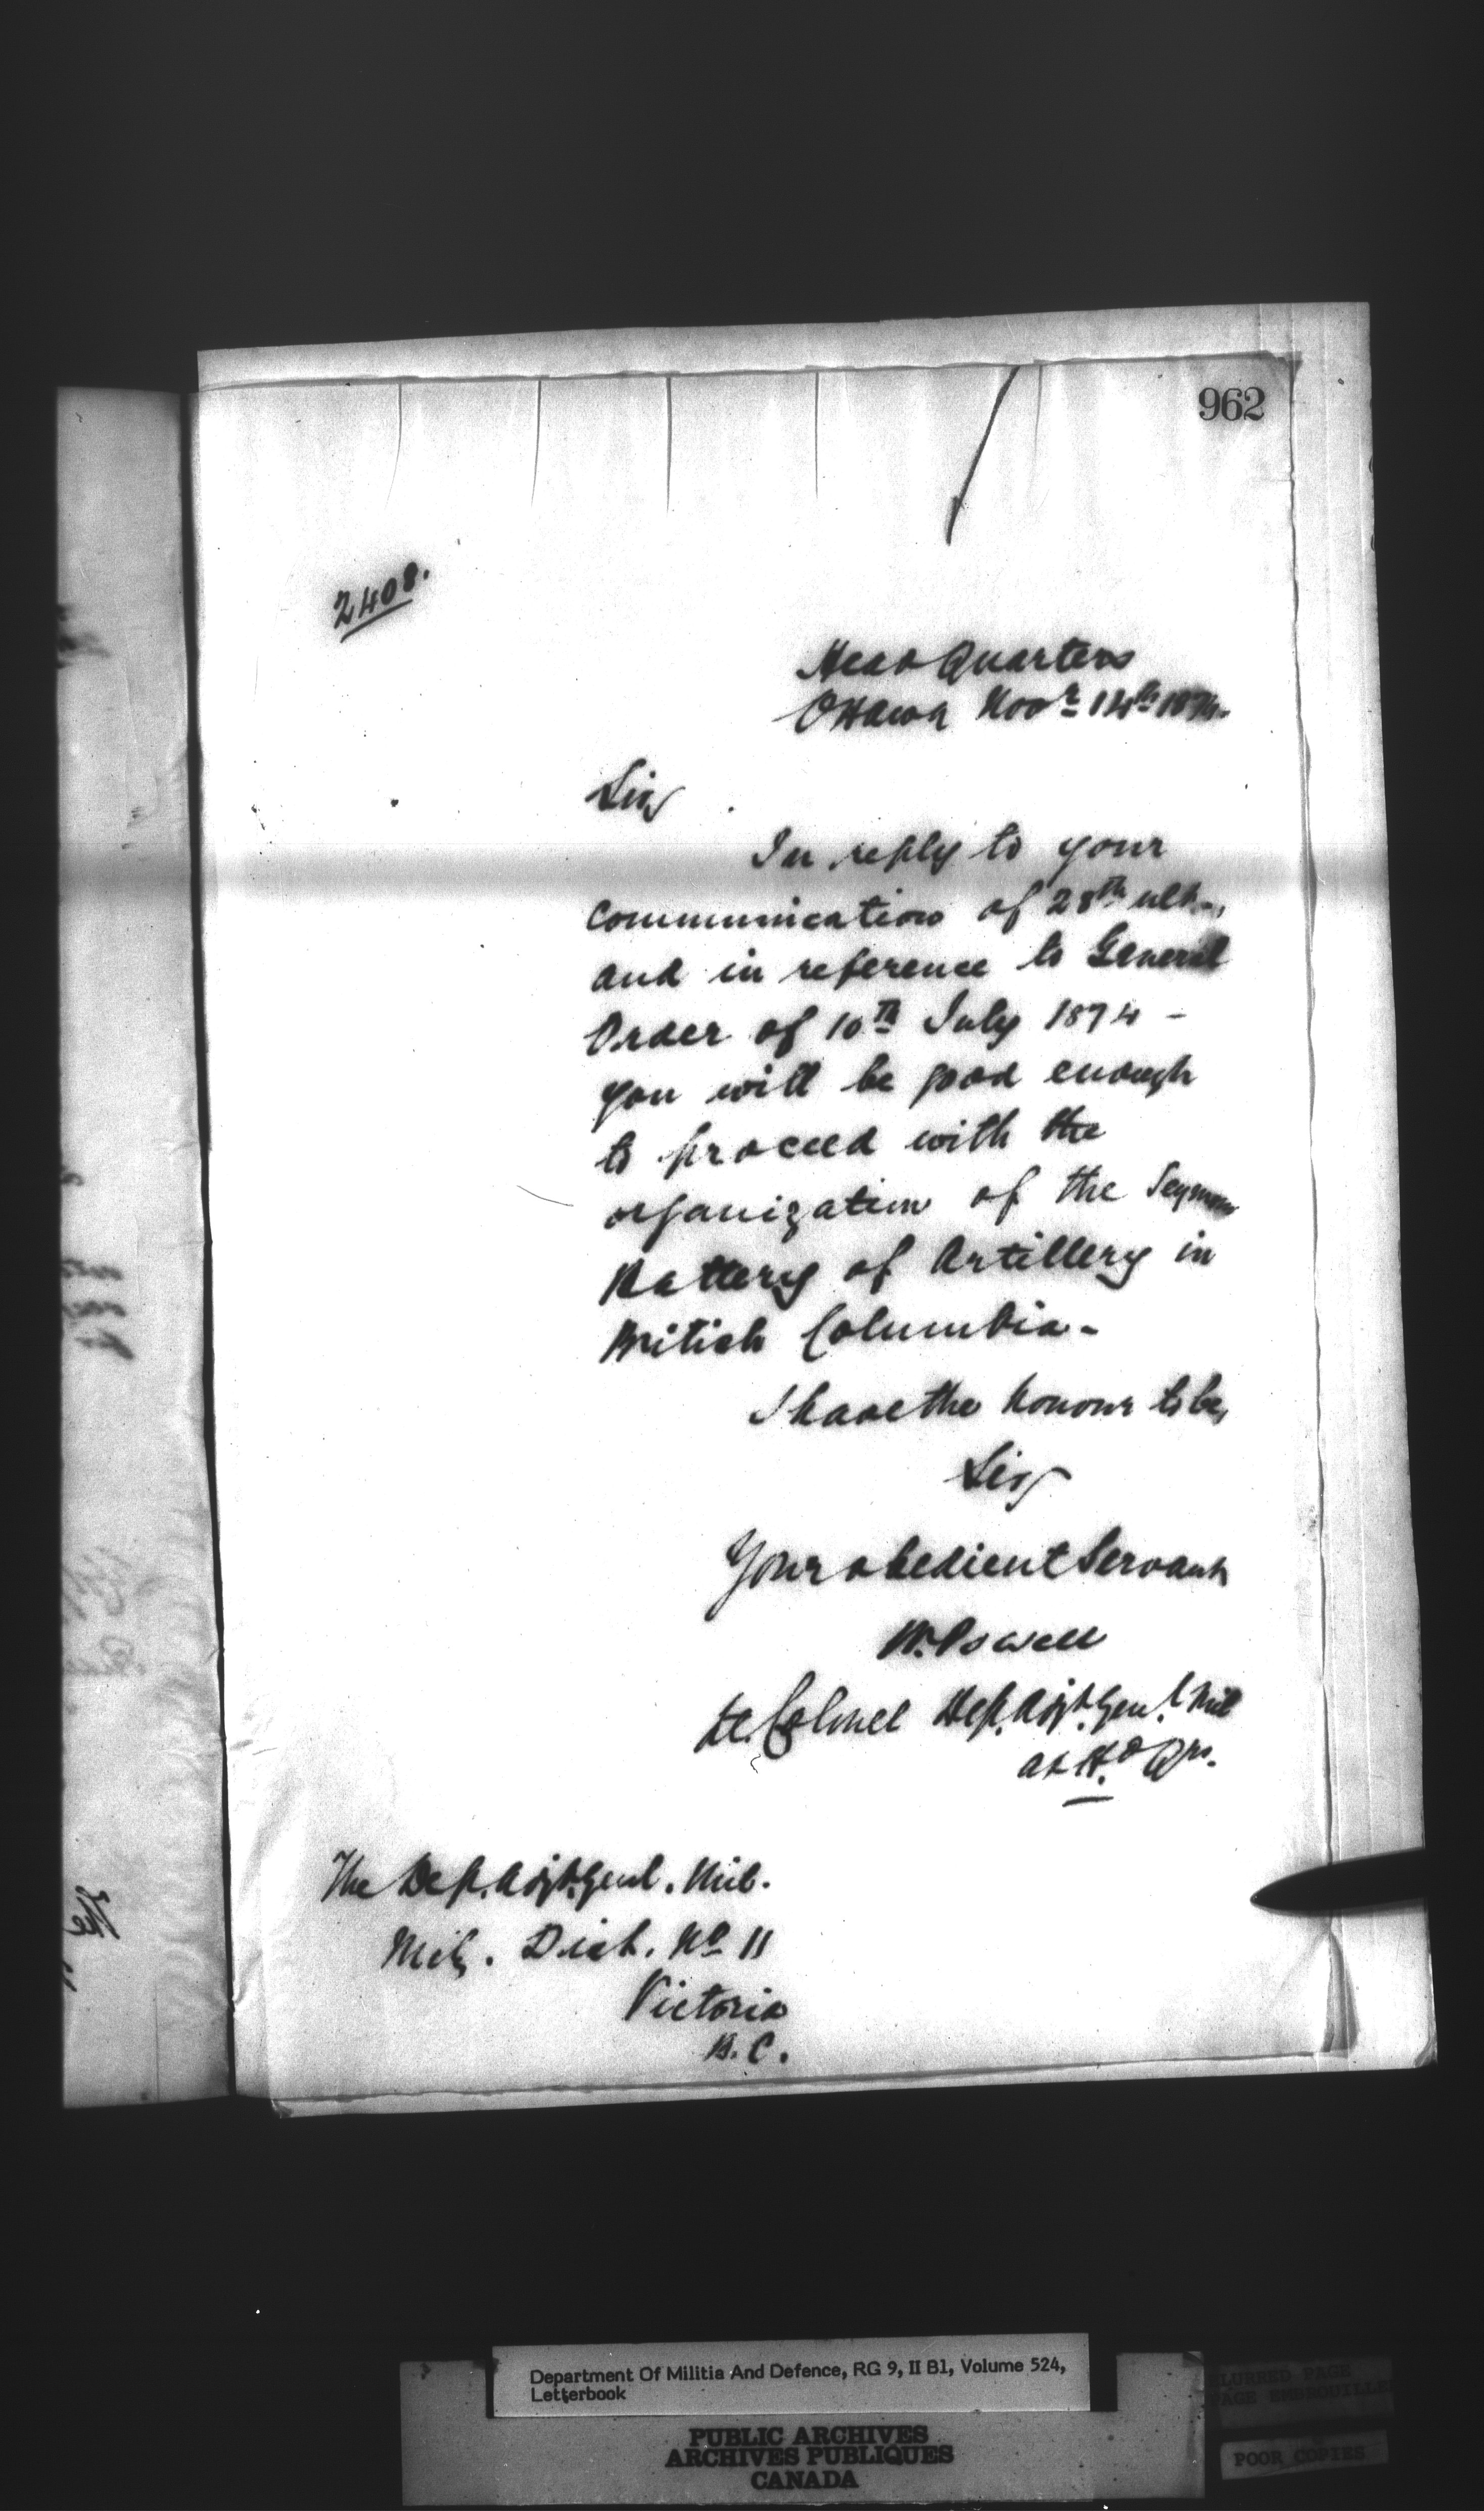 962
2408.
Head Quarters
Ottawa Novr 14th 1874.
Sir,
In reply to your
communication of 28th ulto.,
and in reference to General
Order of 10th July 1874 -
you will be good enough
to proceed with the
organization of the Seymour
Battery of Artillery in
British Columbia -
I have the honour to be,
Sir,
Your obedient Servant
W. Powell
Lt. Colonel Dep. Adjt. Genl. Mil
at Hd. Qrs.
The Dep. Adjt. Genl. Mil.
Mily. Dist. No 11
Victoria
B.C.
The
Department Of Militia And Defence, RG 9, II B1, Volume 524,
Letterbook
PUBLIC ARCHIVES
ARCHIVES PUBLIQUES
CANADA
BLURRED PAGE
PAGE EMBROUILLE
POOR COPIES